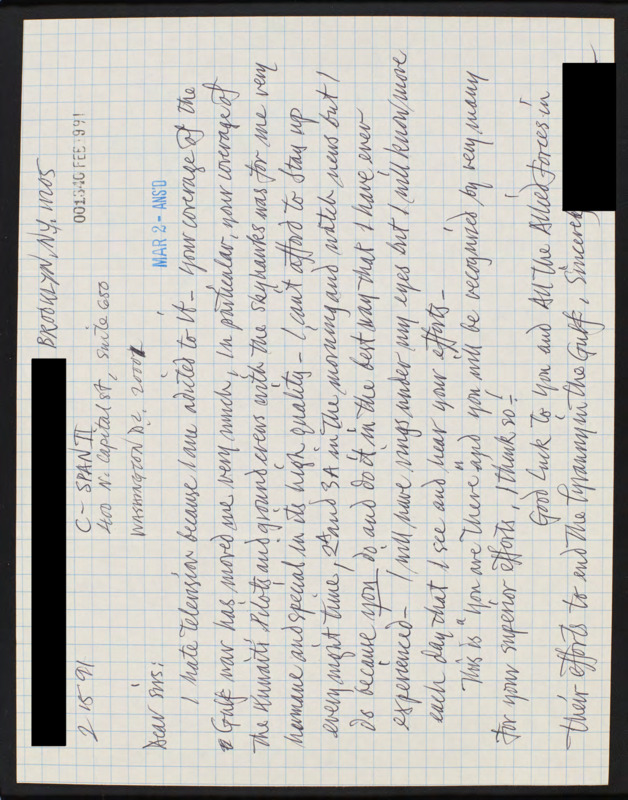 BROOKLYN, NY, 11205
001340 FEB 1991
2 15 91
C-SPAN II
400 N. Capital St, Suite 650
WASHINGTON D.C. 20001
MAR 2 - ANS'D
Dear Sirs:
I hate television because I am adicted to it - Your coverage of the
Gulf war has moved me very much, In particular your coverage of
the Kuwaiti Pilots and ground crews with the Skyhawks was for me very
humane and special in its high quality - I can't afford to stay up
every night time, 2A and 3A in the morning and watch news but I
do because you do and do it in the best way that I have ever
experienced - I will have rings under my eyes but I will know more
each day that I see and hear your efforts -
This is "you are there" and you will be recognized by very many
for your superior efforts, I think so!
Good Luck to You and All the Allied Forces in
their efforts to end The Tyranny in the Gulf, Sincerely